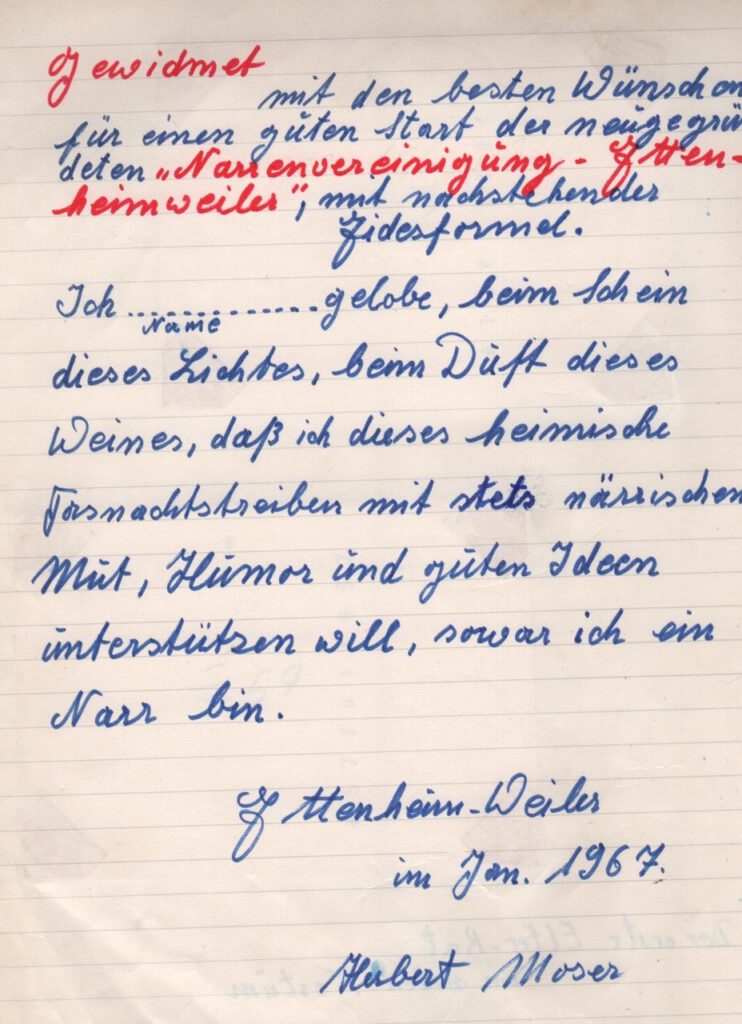 Gewidmet
mit den besten Wünschen
für einen guten Start der neugegrün
deten „Narrenvereinigung - Itten-
heimweiler", mit nachstehender
Fidesformel.
Ich .................. gelobe, beim Schein
Name
dieses Lichtes, beim Duft dieses
Weines, daß ich dieses heimische
Fasnachtstreiben mit stets närrischen
Mut, Humor und guten Ideen
unterstützen will, sowar ich ein
Narr bin.
Ittenheim-Weiler
im Jan. 1967.
Herbert Moser